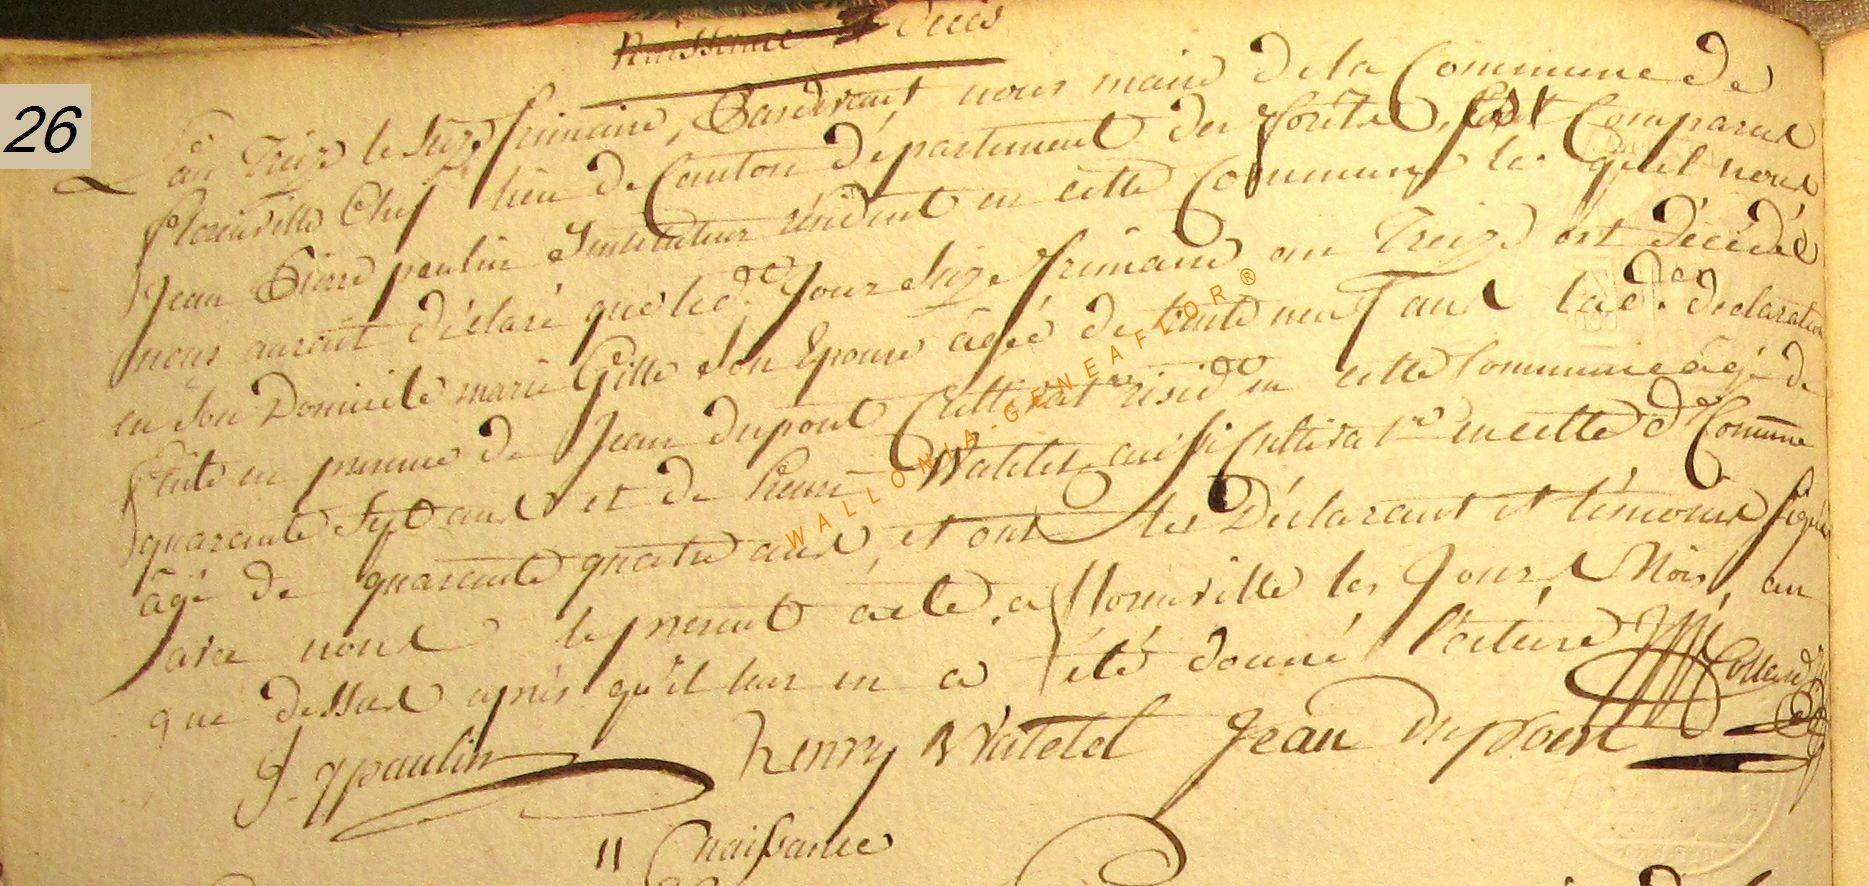 26
Naissance et décès
L'an Treize le Seize frimaire, Pardevant nous maire de la Commune de
florenville Chef lieu de Canton département des forêts, Est Comparut
Jean Pierre paulin Instituteur résident en cette Commune le quel nous
nous auroit déclaré que led.t Jour Seize frimaire an Treize est décédée
en Son Domicile marie Gille Son Epouse âgée de trente neuf ans lad.e declaration
faite en presence de Jean dupont Cultivat.r resid.t en cette Commune âgé de
quarante Sept ans et de henri Watelet aussi Cultivat.r en cette d.e Comune
âgé de quarante quatre ans, et ont les Déclarant et témoins signé
avec nous le present acte, a florenville les Jour, Mois, an
que dessus après qu'il leur en a été donné lecture
Collard
J. p paulin henry Watelet Jean Dupont
11 Naissance
WALLONIA-GENEAFLOR®